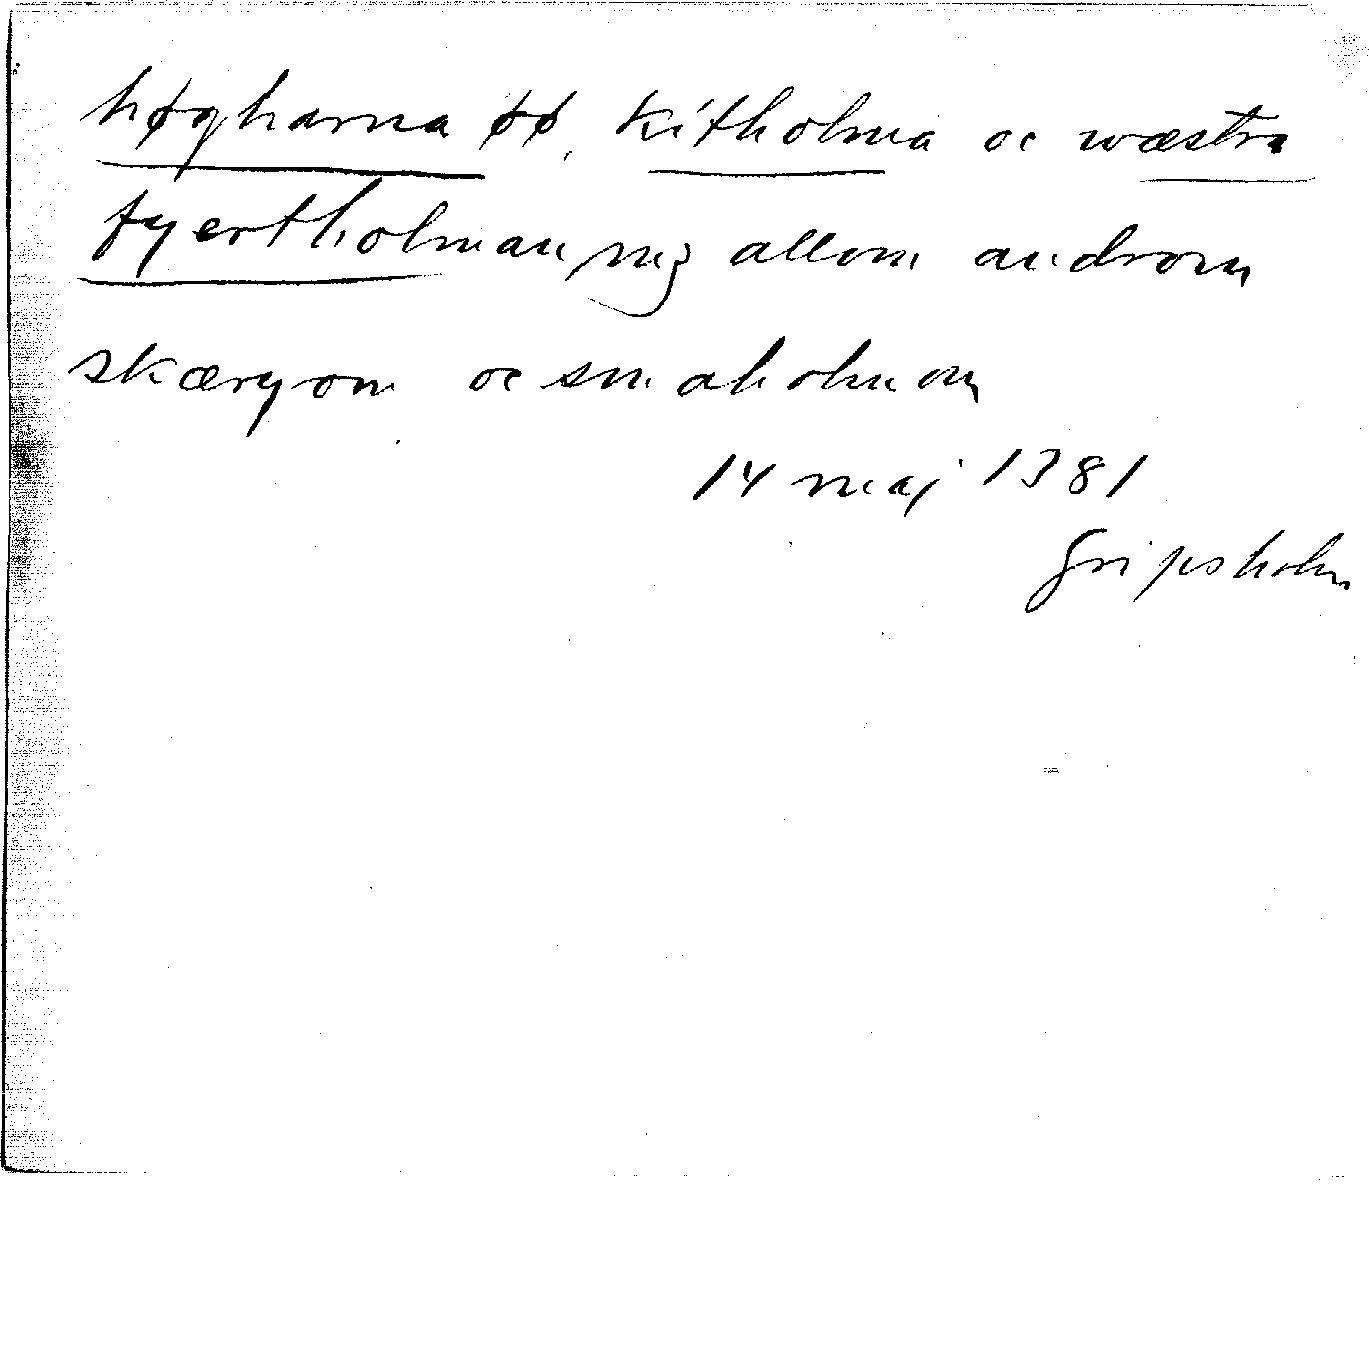 høgharna øø, kitholma oc wæstra
fyertholman mz allom androm
skæryom oc smaholmom
14 maj 1381
Gripsholm